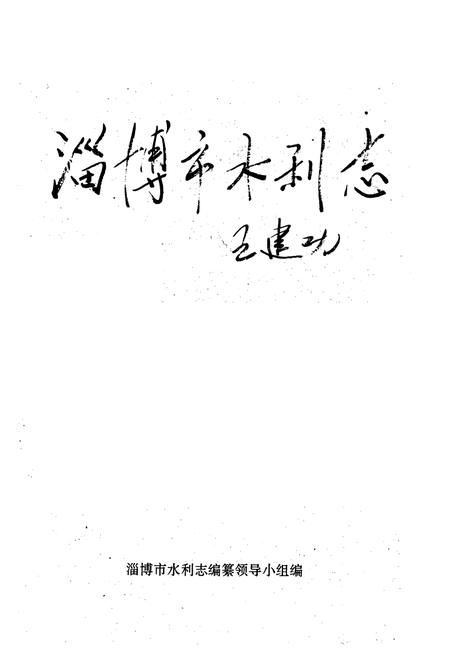 淄博市水利志
王建功
淄博市水利志编纂领导小组编